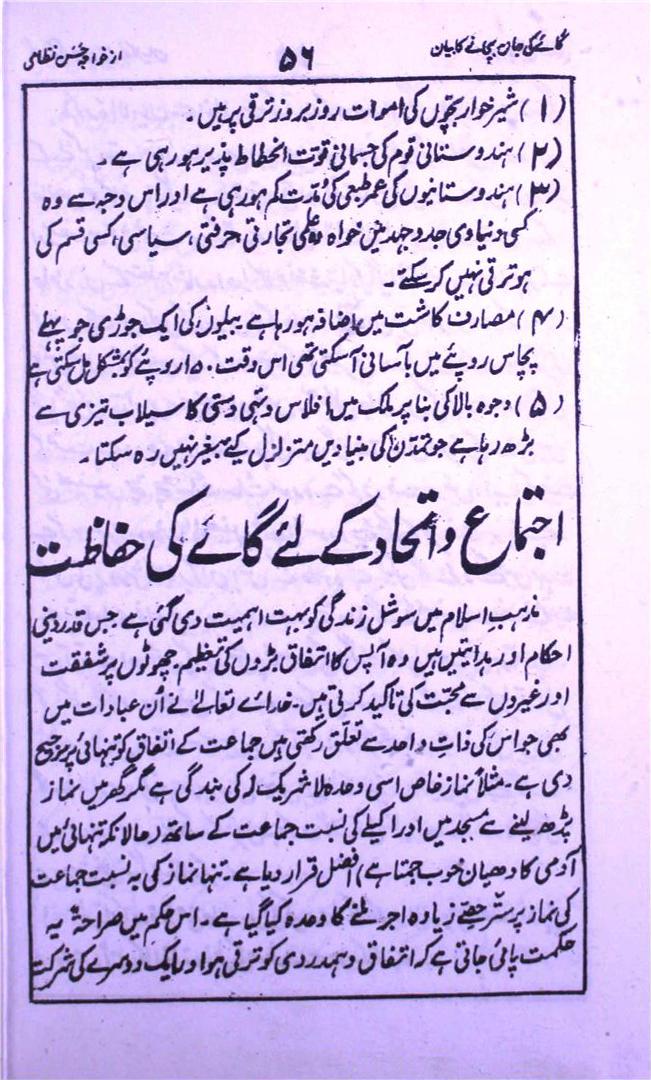 گائے کی جان بچانے کا بیان ۵۶ از خواجہ حسن نظامی
(۱) شیر خوار بچوں کی اموات روز بروز ترقی پر ہیں۔
(۲) ہندوستانی قوم کی جسمانی قوت انحطاط پذیر ہو رہی ہے۔
(۳) ہندوستانیوں کی عمر طبعی کی مدت کم ہو رہی ہے اور اس وجہ سے وہ
کسی دنیاوی جدوجہد میں خواہ وہ علمی تجارتی، حرفتی، سیاسی، کسی قسم کی
ہو ترقی نہیں کر سکتے۔
(۴) مصارف کاشت میں اضافہ ہو رہا ہے بیلوں کی ایک جوڑی جو پہلے
پچاس روپئے میں بآسانی آسکتی تھی اس وقت ۱۵۰ روپئے کو بمشکل مل سکتی ہے
(۵) وجوہ بالا کی بنا پر ملک میں افلاس و تہی دستی کا سیلاب تیزی سے
بڑھ رہا ہے جو تمدن کی بنیادیں متزلزل کیے بغیر نہیں رہ سکتا۔
اجتماع و اتحاد کے لئے گائے کی حفاظت
مذہب اسلام میں سوشل زندگی کو بہت اہمیت دی گئی ہے جس قدر دینی
احکام اور ہدایتیں ہیں وہ آپس کا اتفاق بڑوں کی تعظیم، چھوٹوں پر شفقت
اور غیروں سے محبت کی تاکید کرتی ہیں۔ خدائے تعالےٰ نے اُن عبادات میں
بھی جو اس کی ذاتِ واحد سے تعلق رکھتی ہیں جماعت کے اتفاق کو تنہائی پر ترجیح
دی ہے۔ مثلاً نماز خاص اسی وحدہ لا شریک لہ کی بندگی ہے مگر گھر میں نماز
پڑھ لینے سے مسجد میں اور اکیلے کی نسبت جماعت کے ساتھ (حالانکہ تنہائی میں
آدمی کا دھیان خوب جمتا ہے) افضل قرار دیا ہے۔ تنہا نماز کی بہ نسبت جماعت
کی نماز پر ستر حصے زیادہ اجر ملنے کا وعدہ کیا گیا ہے۔ اس حکم میں صراحۃً یہ
حکمت پائی جاتی ہے کہ اتفاق و ہمدردی کو ترقی ہو اور ایک دوسرے کی شرکت